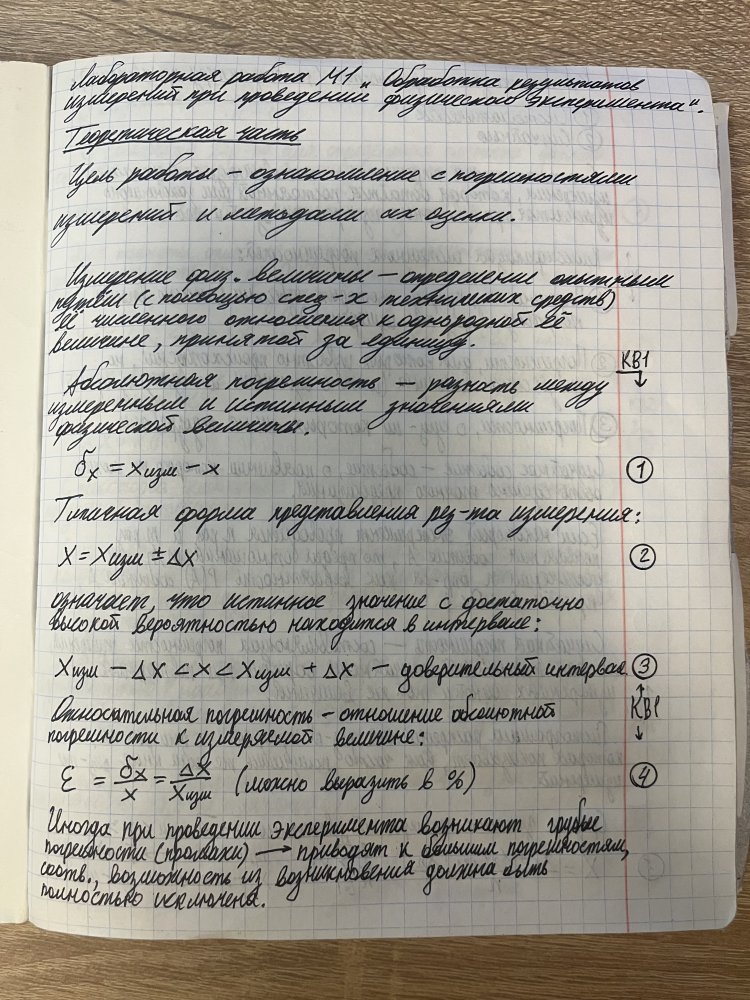 Лабораторная работа М1 „Обработка результатов
измерений при проведении физического эксперимента“.
Теоретическая часть
Цель работы – ознакомление с погрешностями
измерений и методами их оценки.
Измерение физ. величины – определение опытным
путём (с помощью спец-х технических средств)
её численного отношения к однородной ей
величине, принятой за единицу.
КВ1
Абсолютная погрешность – разность между
измеренным и истинным значениями
физической величины.
δx = xизм – x ①
Типичная форма представления рез-та измерения:
X = Xизм ± ΔX ②
означает, что истинное значение с достаточно
высокой вероятностью находится в интервале:
Xизм – ΔX < X < Xизм + ΔX – доверительный интервал ③
КВ1
Относительная погрешность – отношение абсолютной
погрешности к измеряемой величине:
Ɛ = δx/x = ΔX/Xизм (можно выразить в %) ④
Иногда при проведении эксперимента возникают грубые
погрешности (промахи) → приводят к большим погрешностям,
соотв., возможность их возникновения должна быть
полностью исключена.